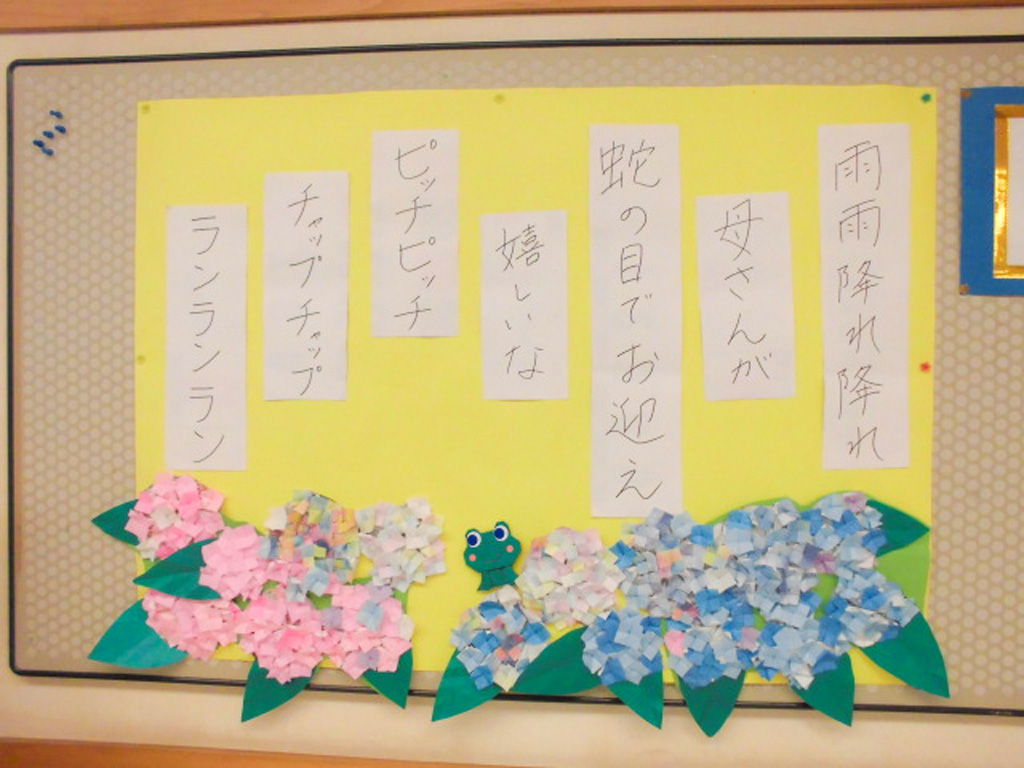 雨雨降れ降れ
母さんが
蛇の目でお迎え
嬉しいな
ピッチピッチ
チャップチャップ
ランランラン